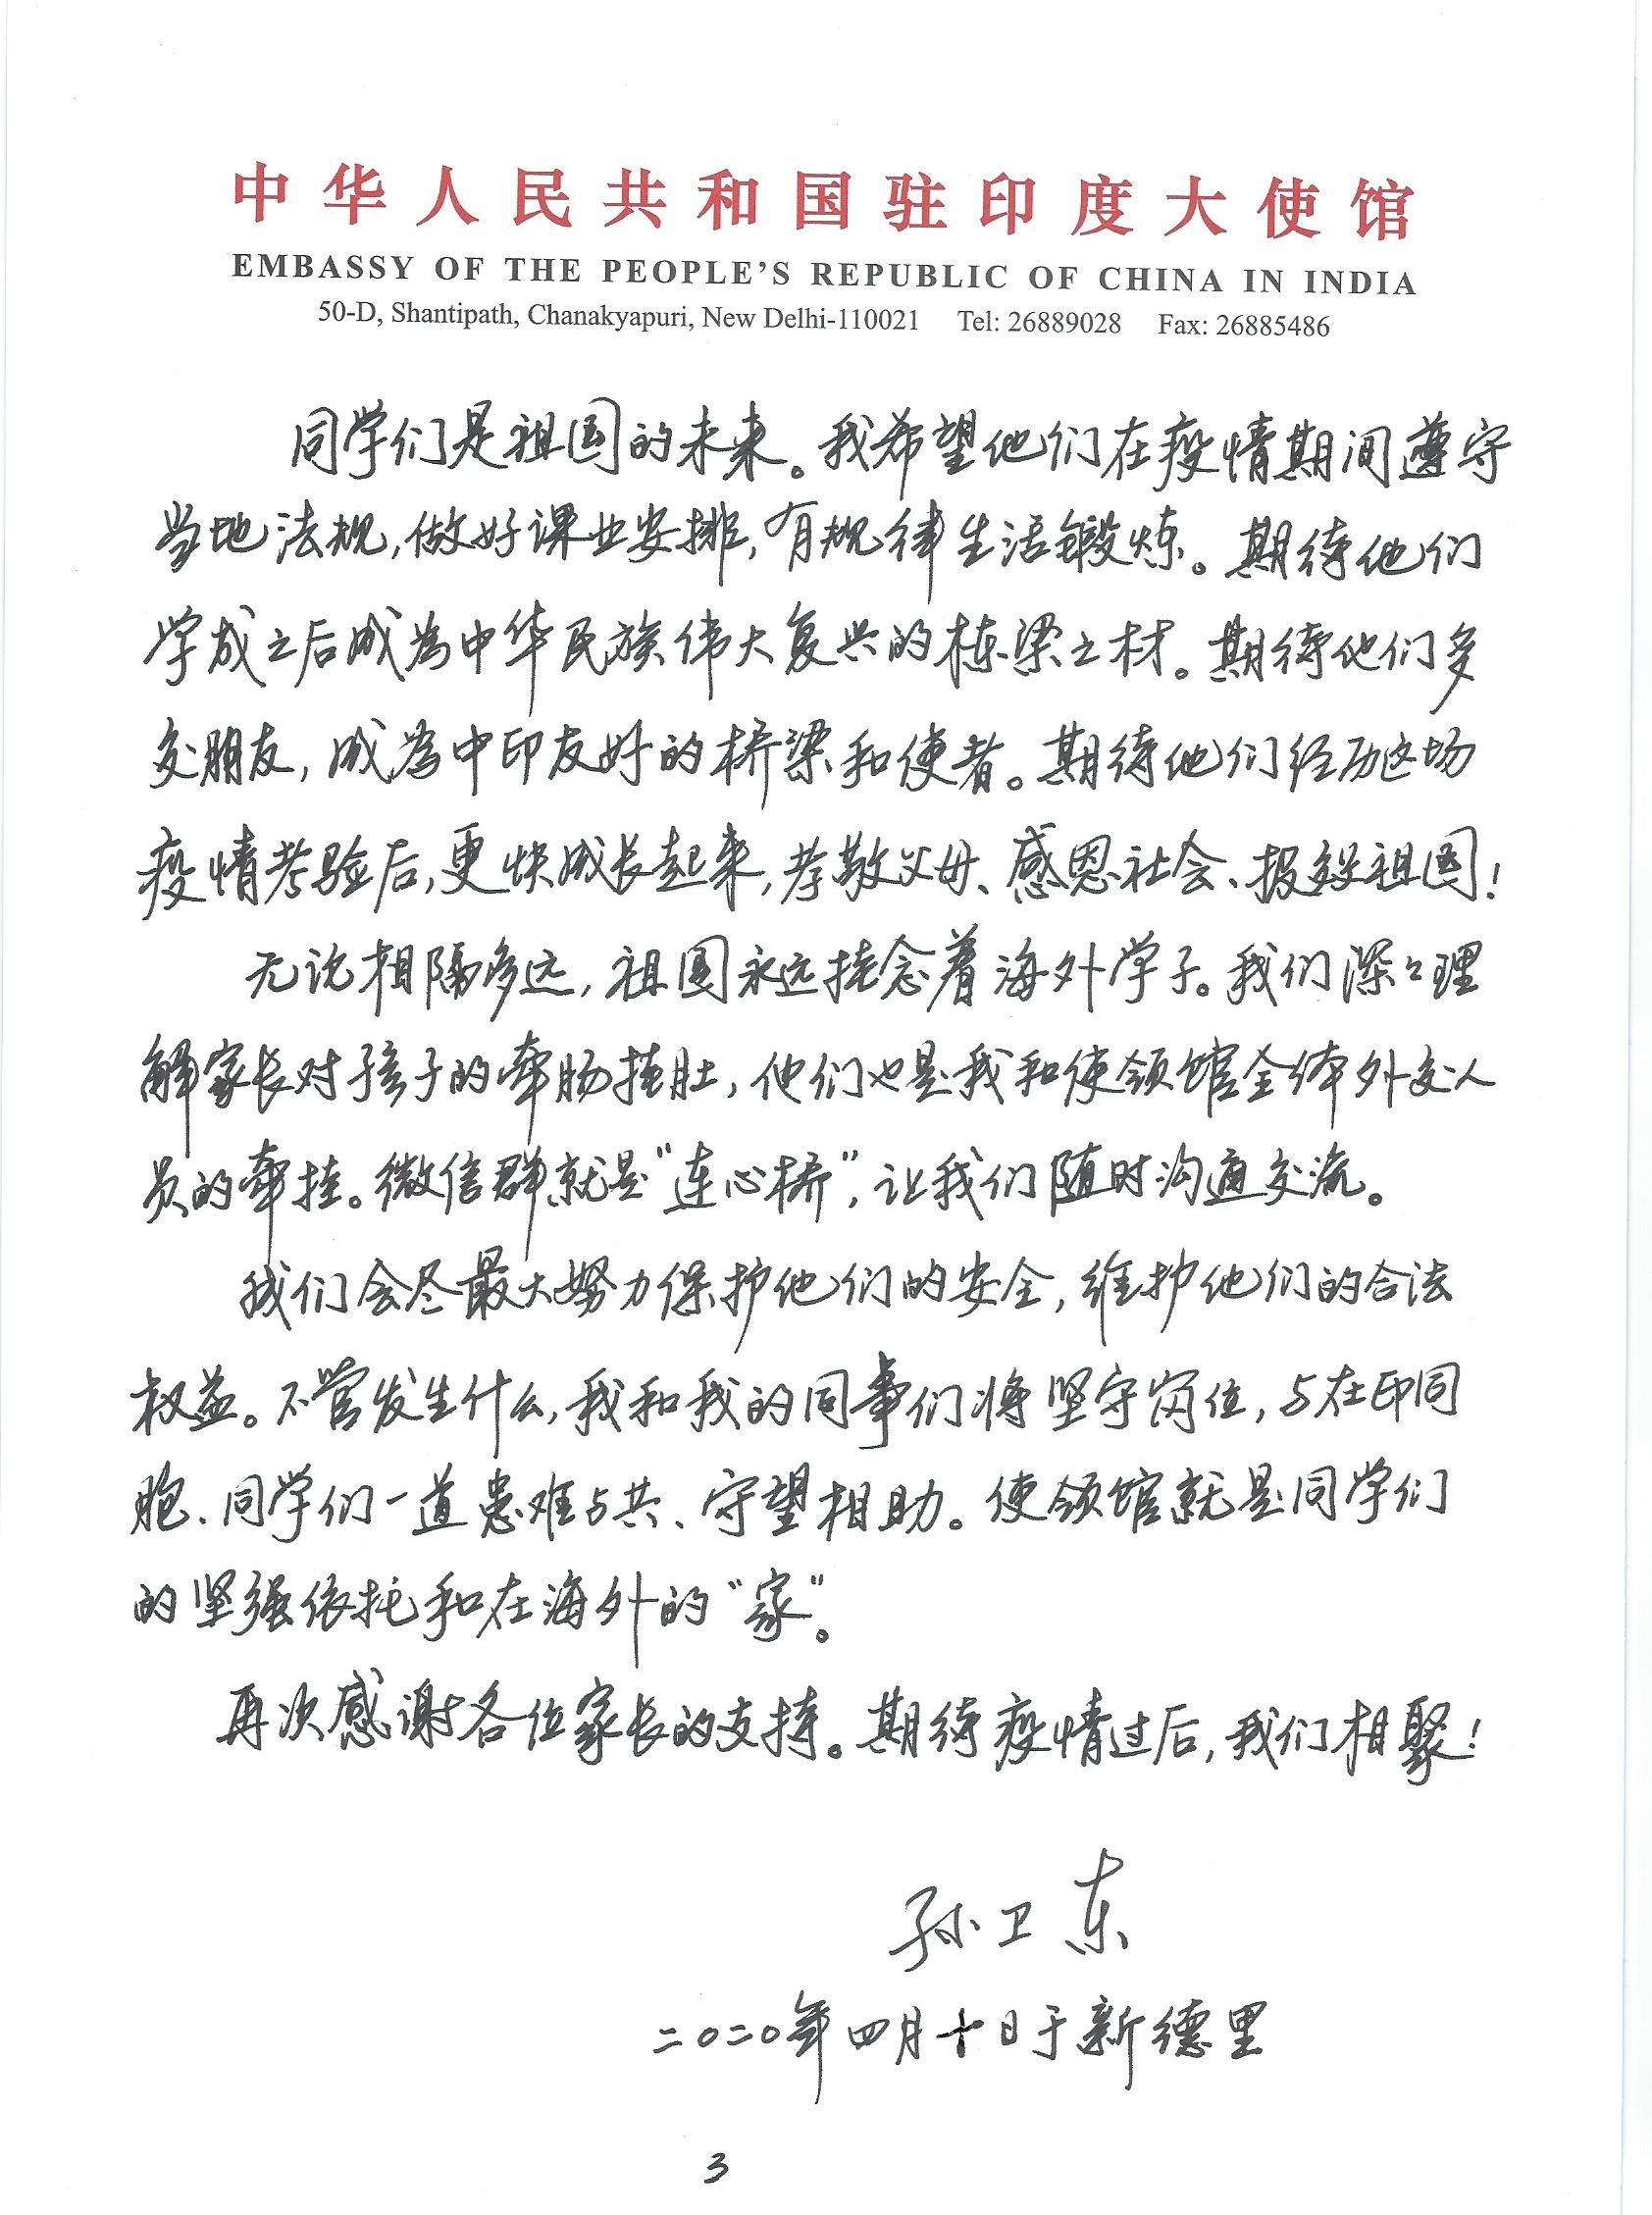 中华人民共和国驻印度大使馆
EMBASSY OF THE PEOPLE'S REPUBLIC OF CHINA IN INDIA
50-D, Shantipath, Chanakyapuri, New Delhi-110021 Tel: 26889028 Fax: 26885486
同学们是祖国的未来。我希望他们在疫情期间遵守
当地法规,做好课业安排,有规律生活锻炼。期待他们
学成之后成为中华民族伟大复兴的栋梁之材。期待他们多
交朋友,成为中印友好的桥梁和使者。期待他们经历这场
疫情考验后,更快成长起来,孝敬父母、感恩社会、报效祖国!
无论相隔多远,祖国永远挂念着海外学子。我们深深理
解家长对孩子的牵肠挂肚,他们也是我和使领馆全体外交人
员的牵挂。微信群就是“连心桥”,让我们随时沟通交流。
我们会尽最大努力保护他们的安全,维护他们的合法
权益。不管发生什么,我和我的同事们将坚守岗位,与在印同
胞、同学们一道患难与共、守望相助。使领馆就是同学们
的坚强依托和在海外的“家”。
再次感谢各位家长的支持。期待疫情过后,我们相聚!
孙卫东
二〇二〇年四月十日于新德里
3